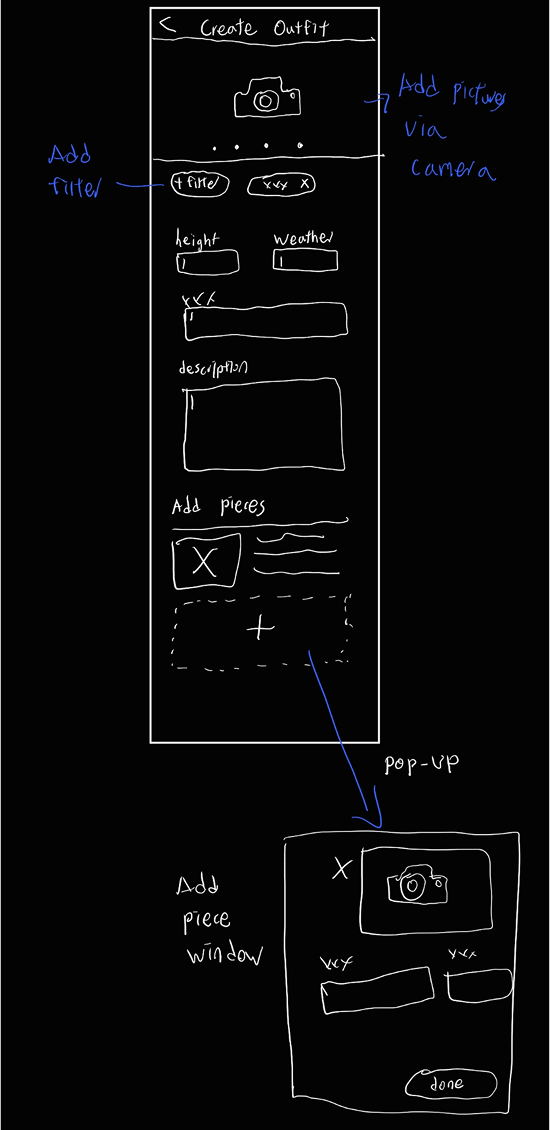 < Create Outfit
Add pictures
via
camera
Add
filter
+ filter
xxx X
height
weather
xxx
description
Add pieces
X
+
pop-up
Add
piece
window
X
xxx
xxx
done